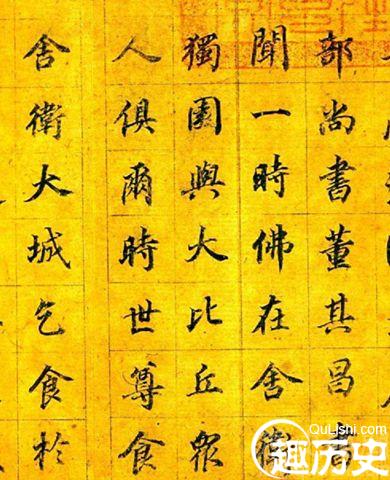 部尚書董其昌
聞一時佛在舍衛
獨園與大比丘眾
人俱爾時世尊食
舍衛大城乞食於
QuLishi.com
趣历史